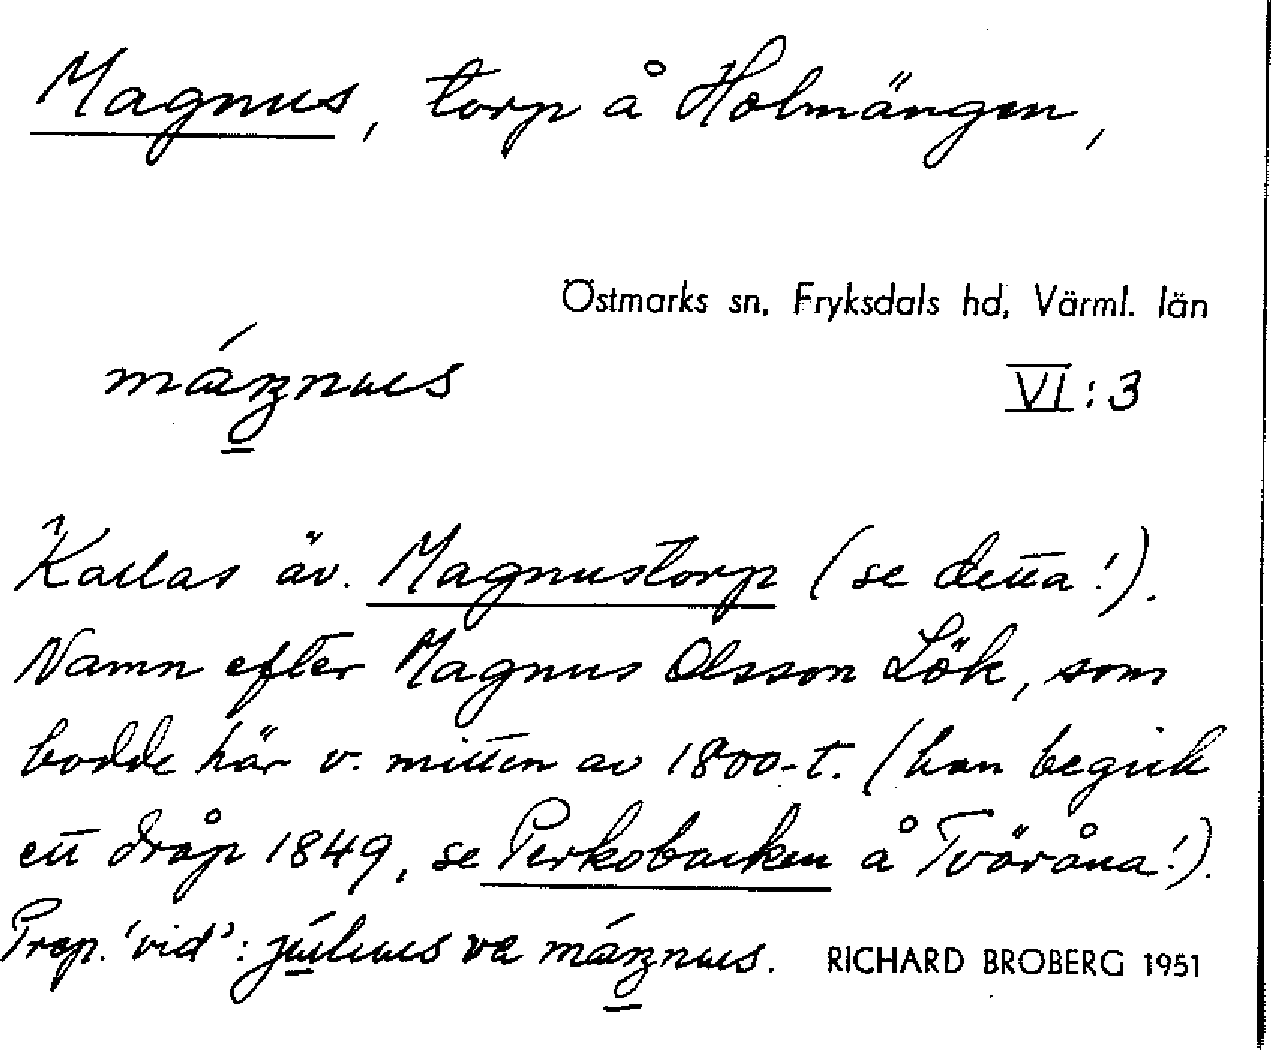 Magnus, torp å Holmängen,
Östmarks sn, Fryksdals hd, Värml. län
máŋnus
VI:3
Kallas äv. Magnustorp (se detta!).
Namn efter Magnus Olsson Lök, som
bodde här v. mitten av 1800-t. (han begick
ett dråp 1849, se Perkobacken å Tväråna!).
Prep. 'vid': július va máŋnus. RICHARD BROBERG 1951